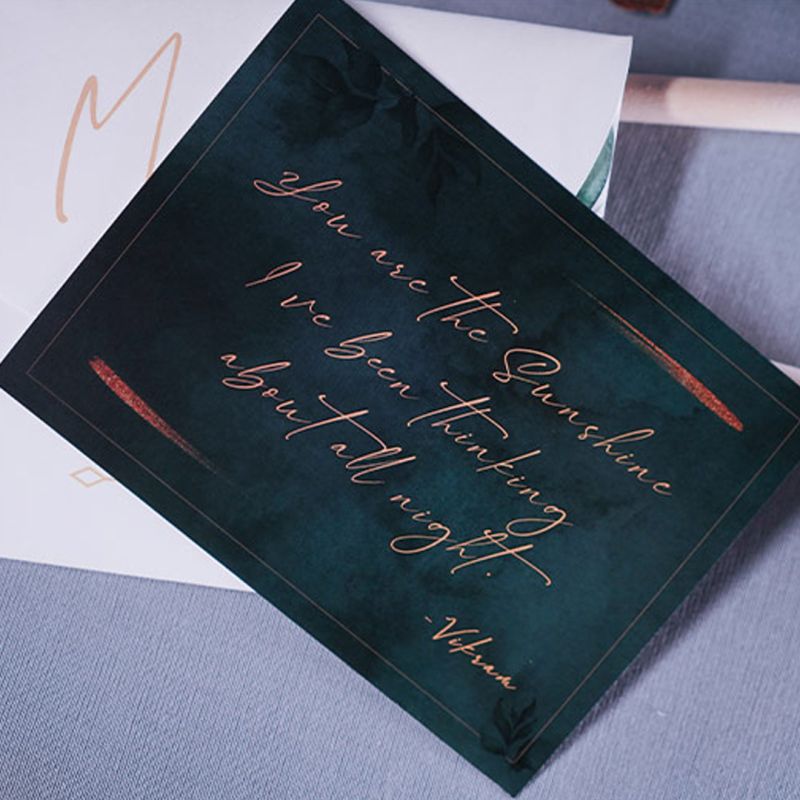 M
You are the Sunshine
I've been thinking
about all night.
-Vikram